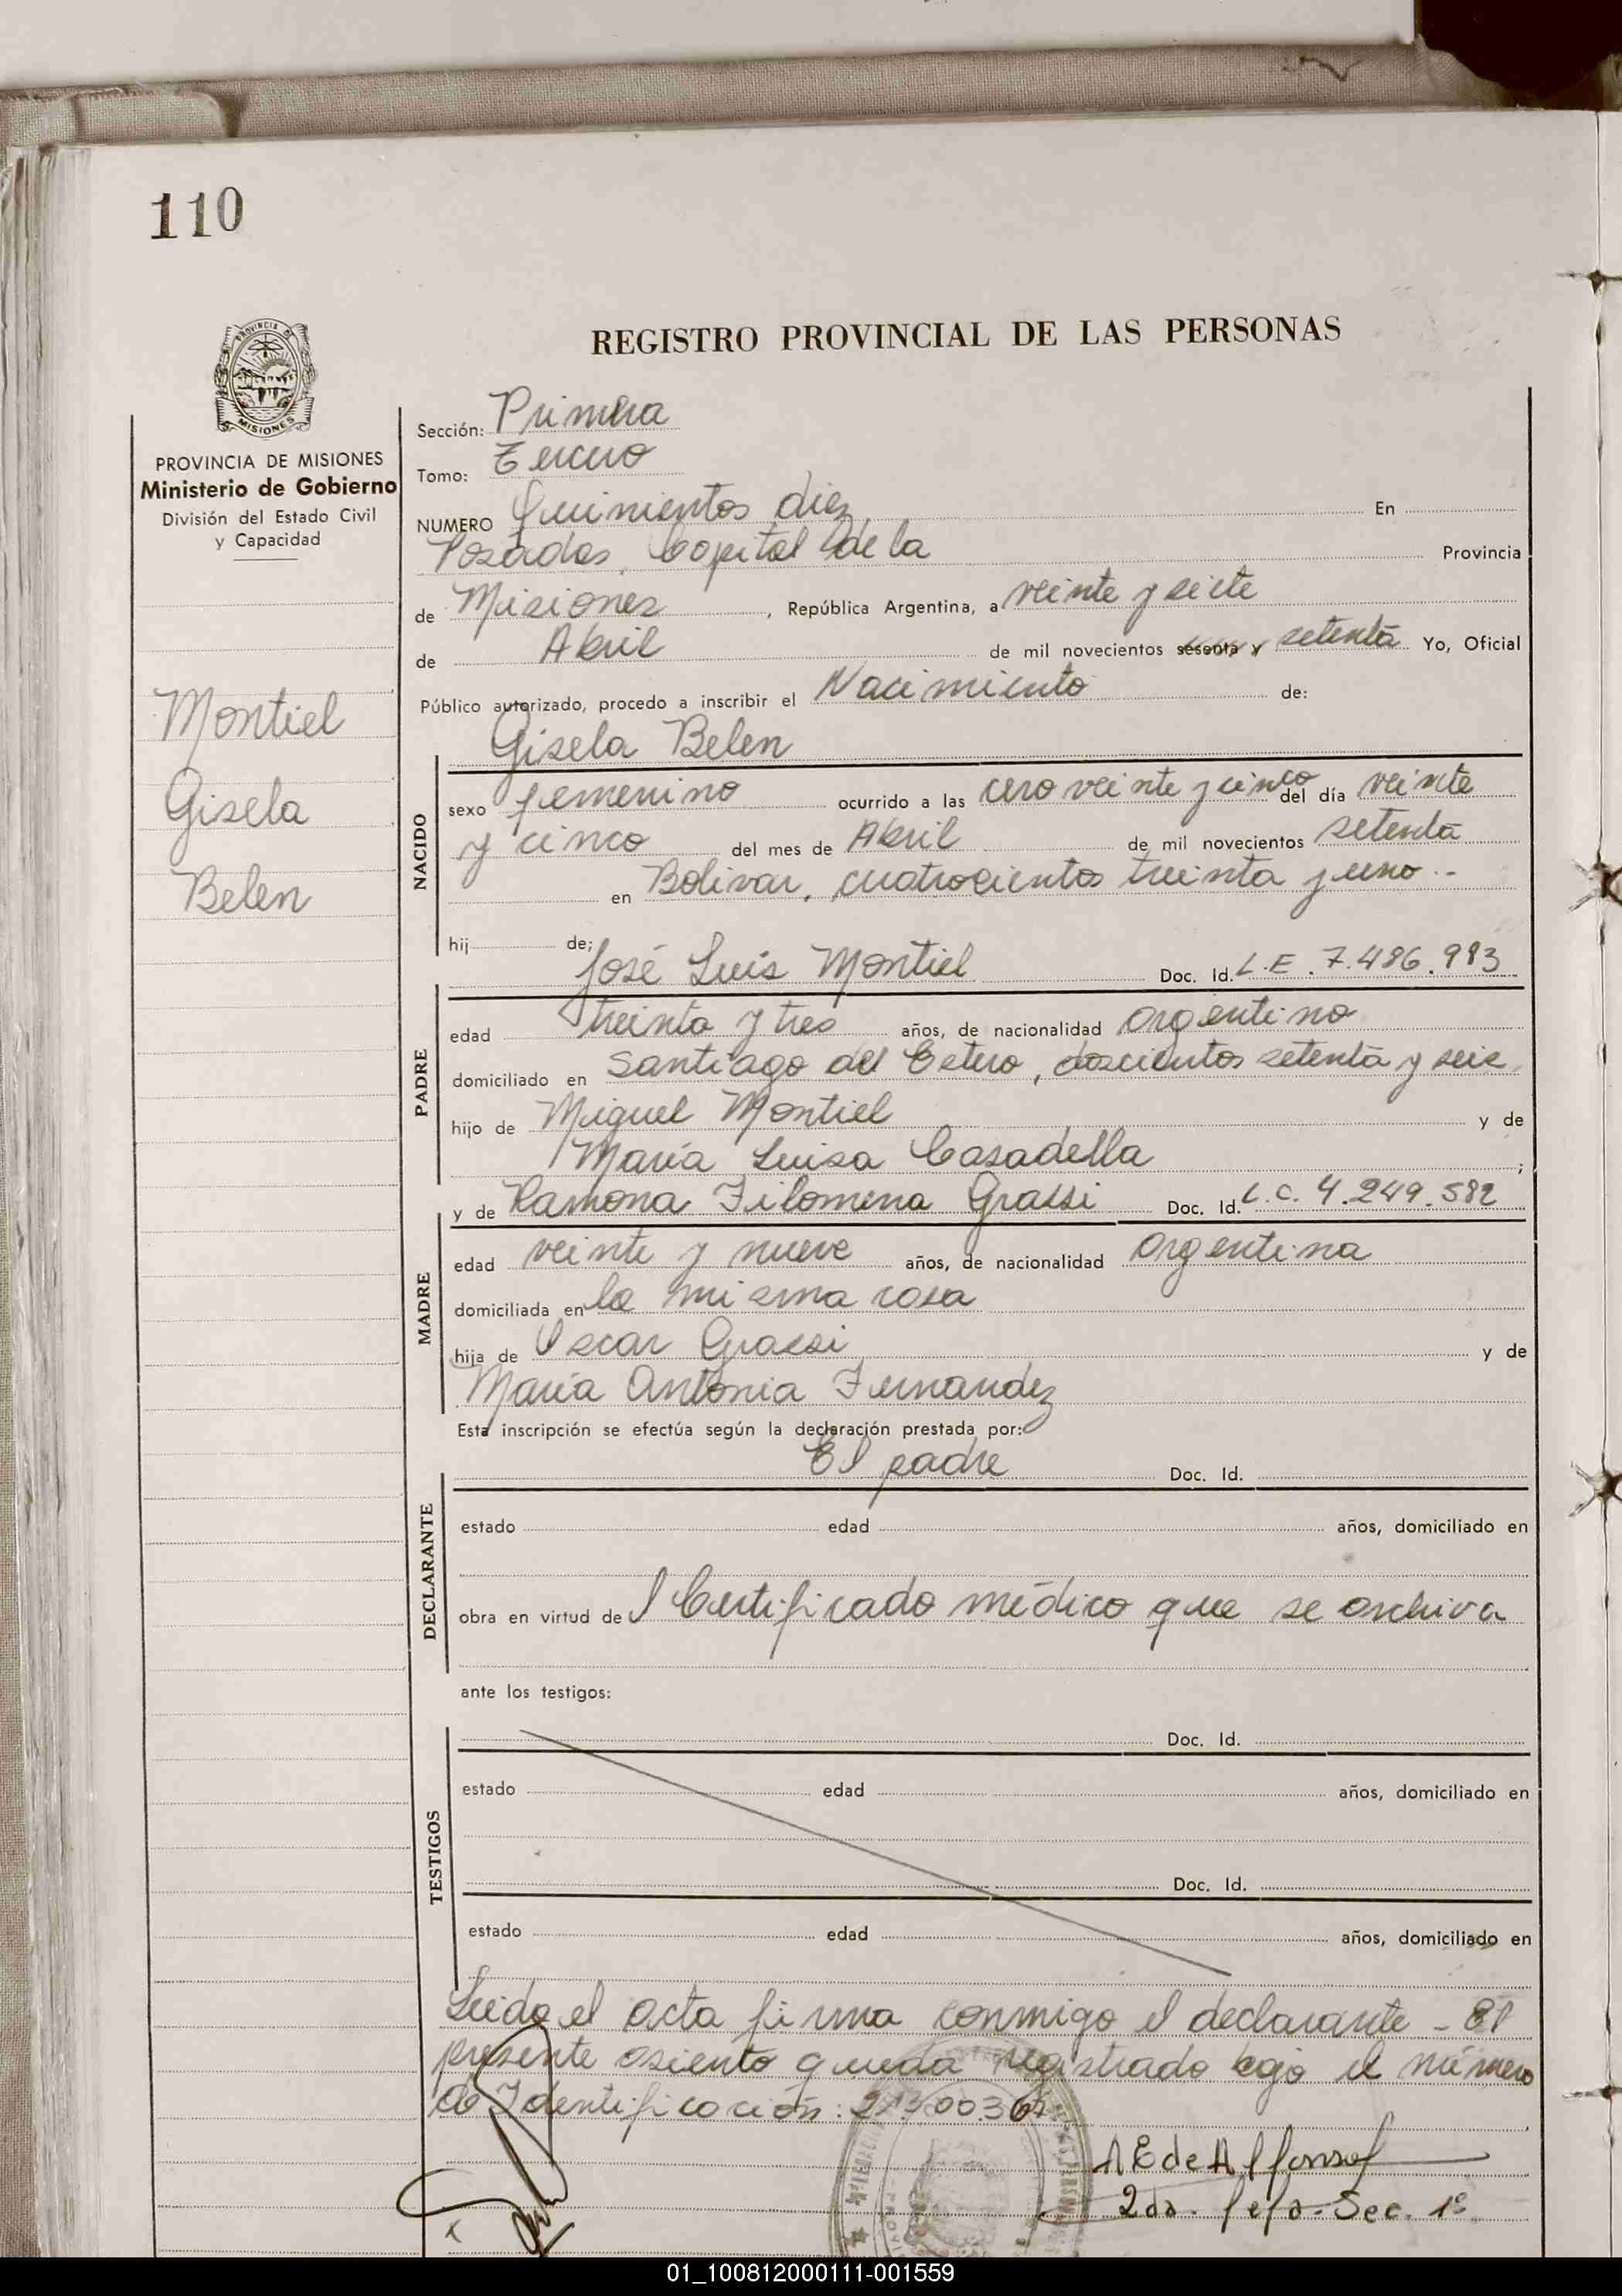 110
REGISTRO PROVINCIAL DE LAS PERSONAS
PROVINCIA DE MISIONES
Ministerio de Gobierno
División del Estado Civil
y Capacidad
Montiel
Gisela
Belen
Sección: Primera
Tomo: Tercero
NUMERO Quinientos diez En
Posadas, Capital de la Provincia
de Misiones, República Argentina, a veinte y siete
de Abril de mil novecientos sesenta y setenta Yo, Oficial
Público autorizado, procedo a inscribir el Nacimiento de:
Gisela Belen
NACIDO
sexo femenino ocurrido a las cero veinte y cinco del día veinte
y cinco del mes de Abril de mil novecientos setenta
en Bolivar, cuatrocientos treinta y uno..
hij de;
José Luis Montiel Doc. Id. L.E. 7.486.983
PADRE
edad treinta y tres años, de nacionalidad argentino
domiciliado en Santiago del Estero, doscientos setenta y seis
hijo de Miguel Montiel y de
María Luisa Casadella;
y de Ramona Filomena Grassi Doc. Id. L.C. 4.249.582
MADRE
edad veinte y nueve años, de nacionalidad argentina
domiciliada en la misma casa
hija de Oscar Grassi y de
María Antonia Fernandez
Esta inscripción se efectúa según la declaración prestada por:
El padre Doc. Id.
DECLARANTE
estado edad años, domiciliado en
obra en virtud del Certificado médico que se archiva
ante los testigos:
Doc. Id.
TESTIGOS
estado edad años, domiciliado en
Doc. Id.
estado edad años, domiciliado en
Leida el acta firma conmigo el declarante - El
presente asiento queda registrado bajo el número
de Identificación:
A E de Alfonso
2da. Jefa. Sec. 1ª
01_100812000111-001559